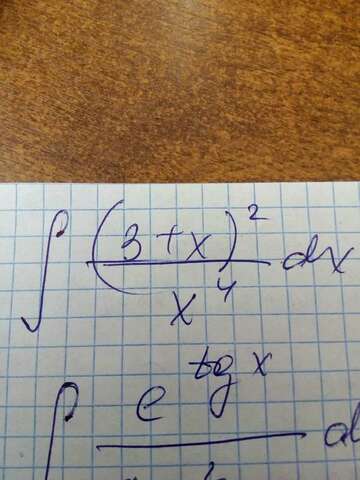 ∫ (3+x)² / x⁴ dx
∫ e^(tg x)